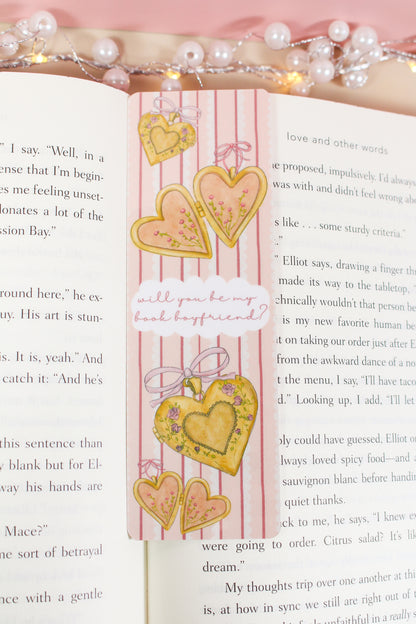 " I say. "Well, in a
ense that I'm begin-
es me feeling unset-
donates a lot of the
ssion Bay."
round here," he ex-
ou. His art is stun-
is. It is, yeah." And
catch it: "And he's
this sentence than
y blank but for El-
way his hands are
Mace?"
ne sort of betrayal
ce with a gentle
will you be my
book boyfriend?
love and other words
e proposed, impulsively. I'd always
was with and didn't feel wrong abo
s like . . . some sturdy criteria."
" Elliot says, drawing a finger th
made its way to the tabletop, "
chnically wouldn't that person be
is my new favorite human be
t on taking our order just after E
from the awkward dance of a no
t the menu, I say, "I'll have taco
d." Looking up, I add, "I'll let
bly could have guessed. Elliot o
lways loved spicy food—and a
sauvignon blanc before handin
quiet thanks.
ck to me, he says, "I knew ex
were going to order. Citrus salad? It's lik
dream."
My thoughts trip over one another at thi
is, at how in sync we still are right out of t
feel so unfaithful in a really s